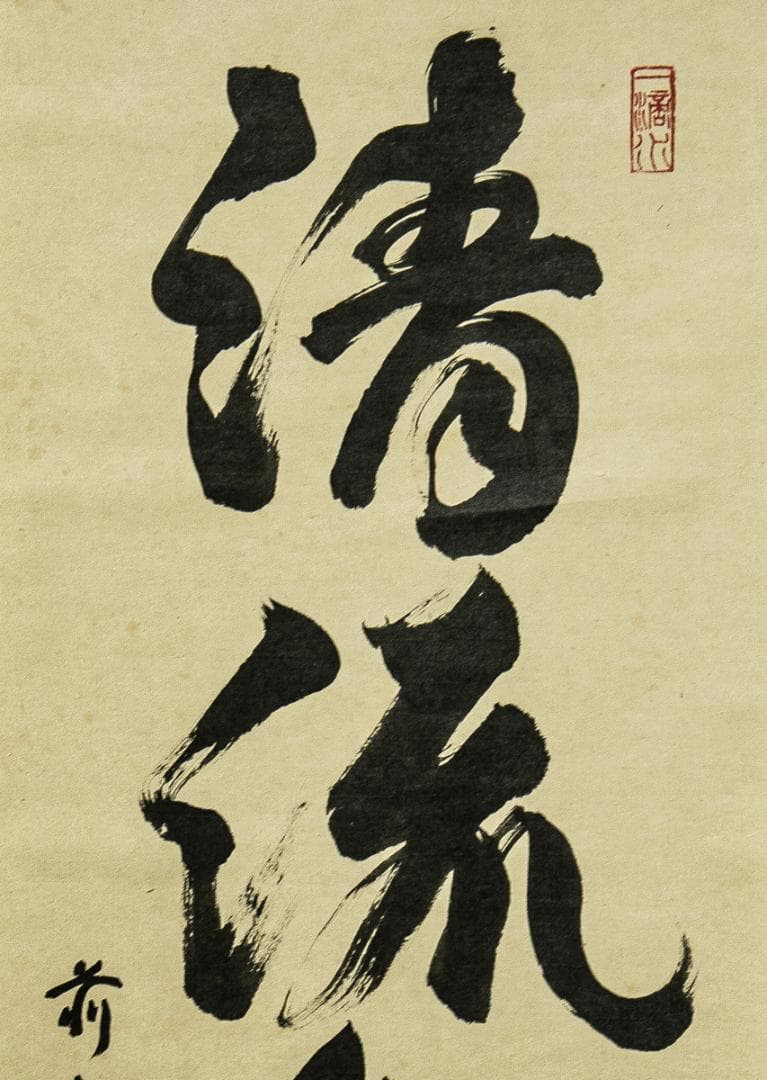 一滴水
清流
前